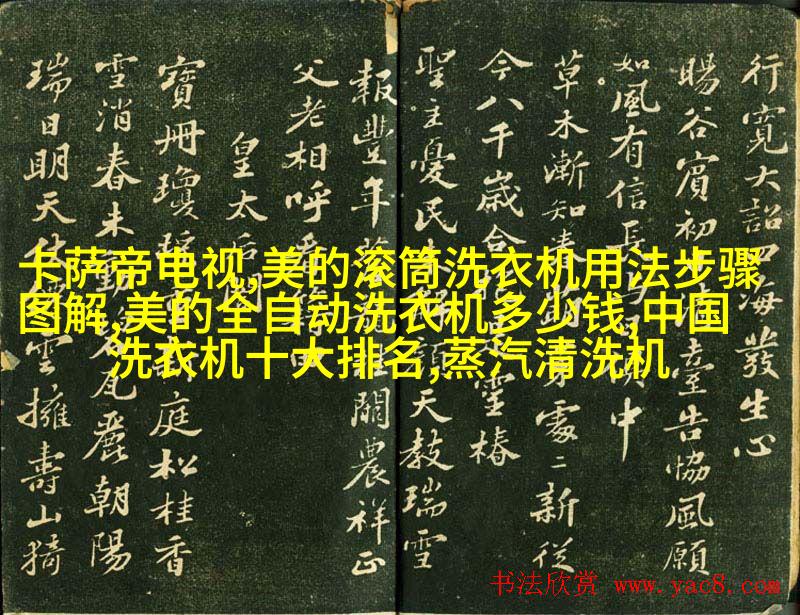 行寬大詔四海發生心
暘谷賓初日清臺告協風願
如風有信長與日俱中
草木漸知春 處〻新從
今八千歲合 靈椿
聖主憂民 解顏天教瑞雪
報豐年 關農祥正
父老相呼看
皇太后閣
寶冊瓊瑤 庭松桂香
雪消春未動 瓦麗朝陽
瑞日明天仗 雲擁壽山猗
卡萨帝电视,美的滚筒洗衣机用法步骤
图解,美的全自动洗衣机多少钱,中国
洗衣机十大排名,蒸汽清洗机
书法欣赏 www.yac8.com